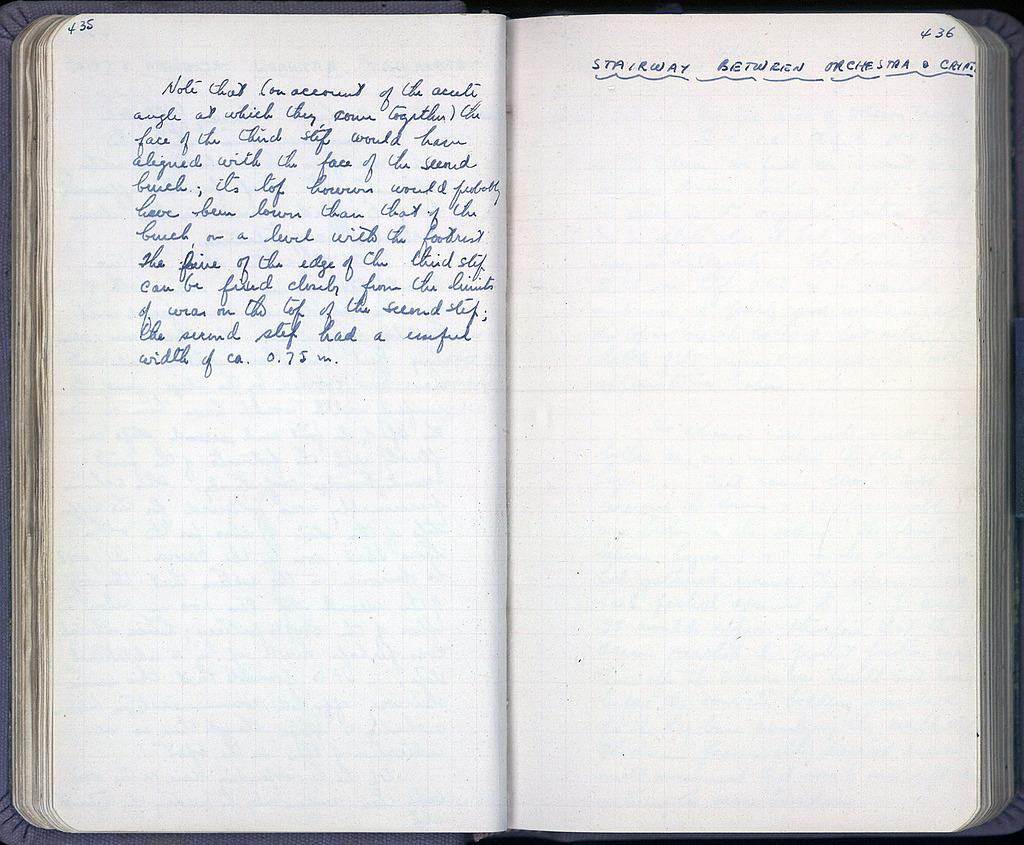 435
Note that (on account of the acute
angle at which they come together) the
face of the third step would have
aligned with the face of the second
bench; its top however would probably
have been lower than that of the
bench, on a level with the footrest.
The line of the edge of the third step
can be fixed closely from the limits
of wear on the top of the second step;
the second step had a useful
width of ca. 0.75 m.
436
STAIRWAY BETWEEN ORCHESTRA &